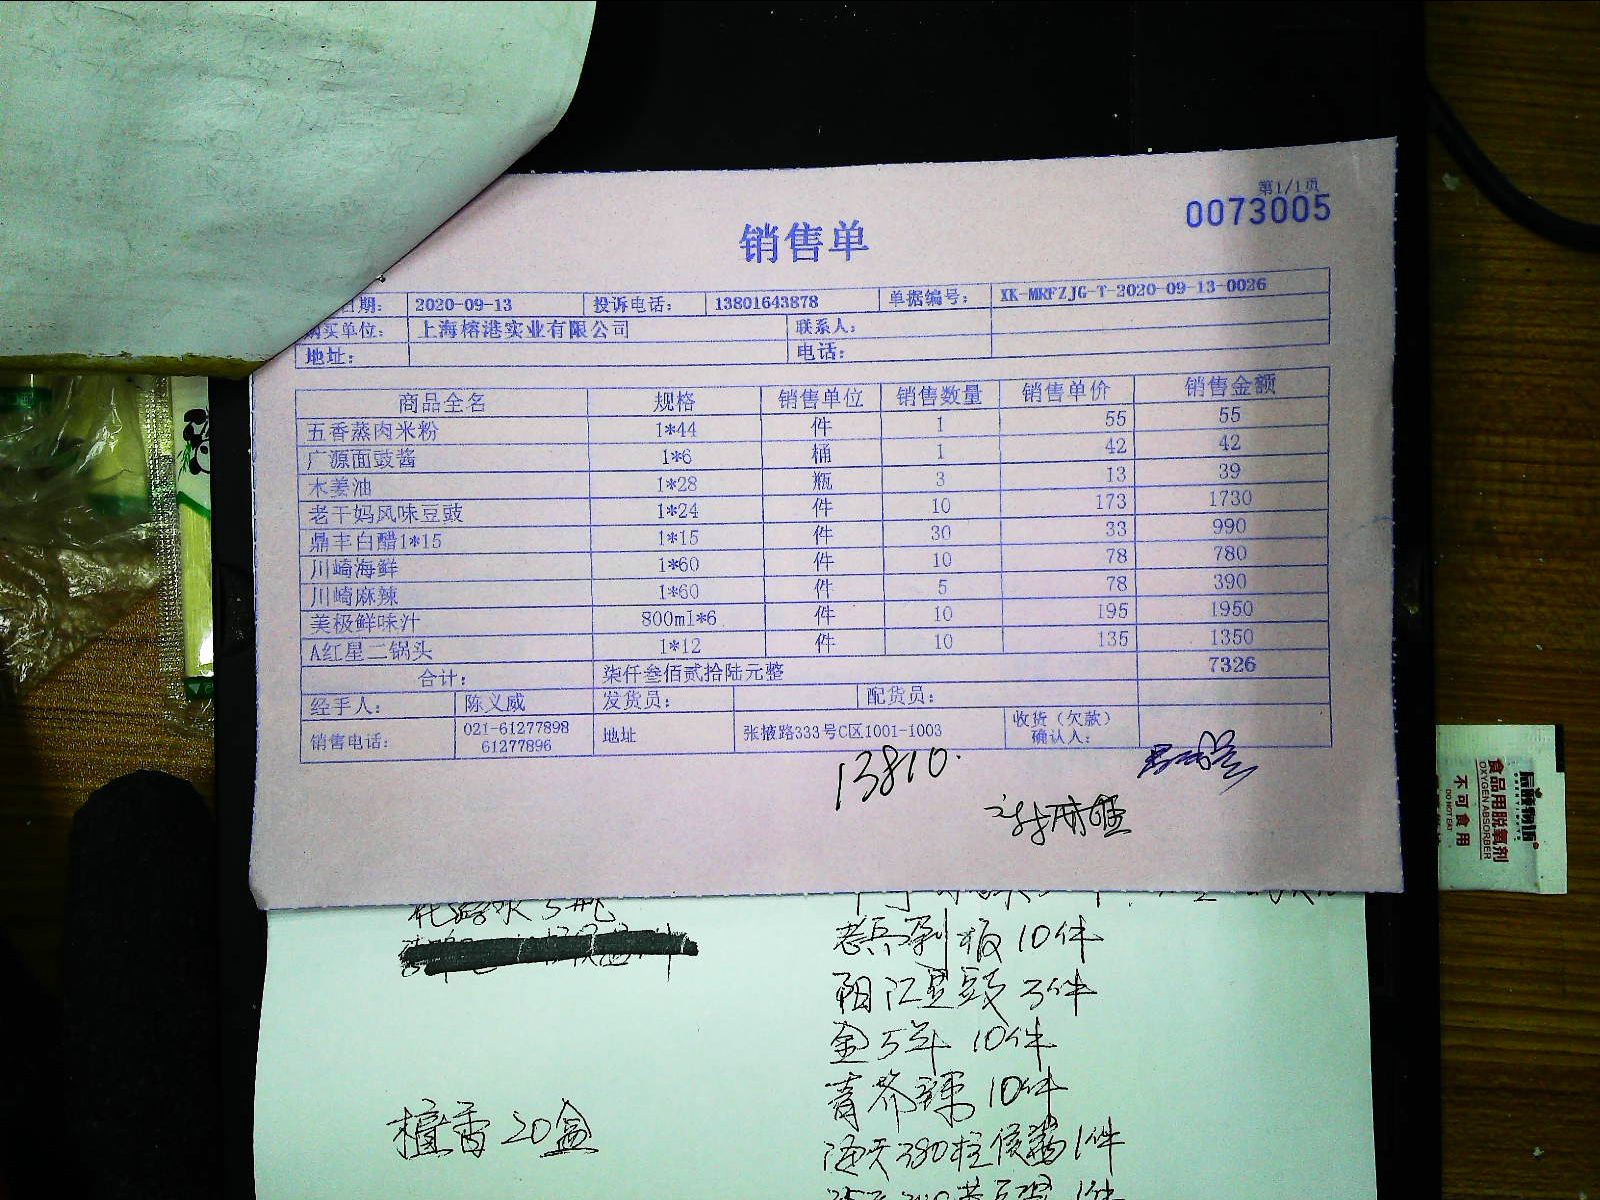 第1/1页
0073005
销售单
日期： 2020-09-13 投诉电话： 13801643878 单据编号： XK-MRFZJG-T-2020-09-13-0026
购买单位： 上海榕港实业有限公司 联系人：
地址： 电话：
商品全名 规格 销售单位 销售数量 销售单价 销售金额
五香蒸肉米粉 1*44 件 1 55 55
广源面豉酱 1*6 桶 1 42 42
木姜油 1*28 瓶 3 13 39
老干妈风味豆豉 1*24 件 10 173 1730
鼎丰白醋1*15 1*15 件 30 33 990
川崎海鲜 1*60 件 10 78 780
川崎麻辣 1*60 件 5 78 390
美极鲜味汁 800ml*6 件 10 195 1950
A红星二锅头 1*12 件 10 135 1350
合计： 柒仟叁佰贰拾陆元整 7326
经手人： 陈义威 发货员： 配货员：
销售电话： 021-61277898 地址 张掖路333号C区1001-1003 收货（欠款）
61277896 确认人：
13810.
食品用脱氧剂
OXYGEN ABSORBER
不可食用
DO NOT EAT
花露水5瓶
老兵剁板10件
阳江豆豉3件
金5年 10件
青芥辣10件
檀香20盒
1件